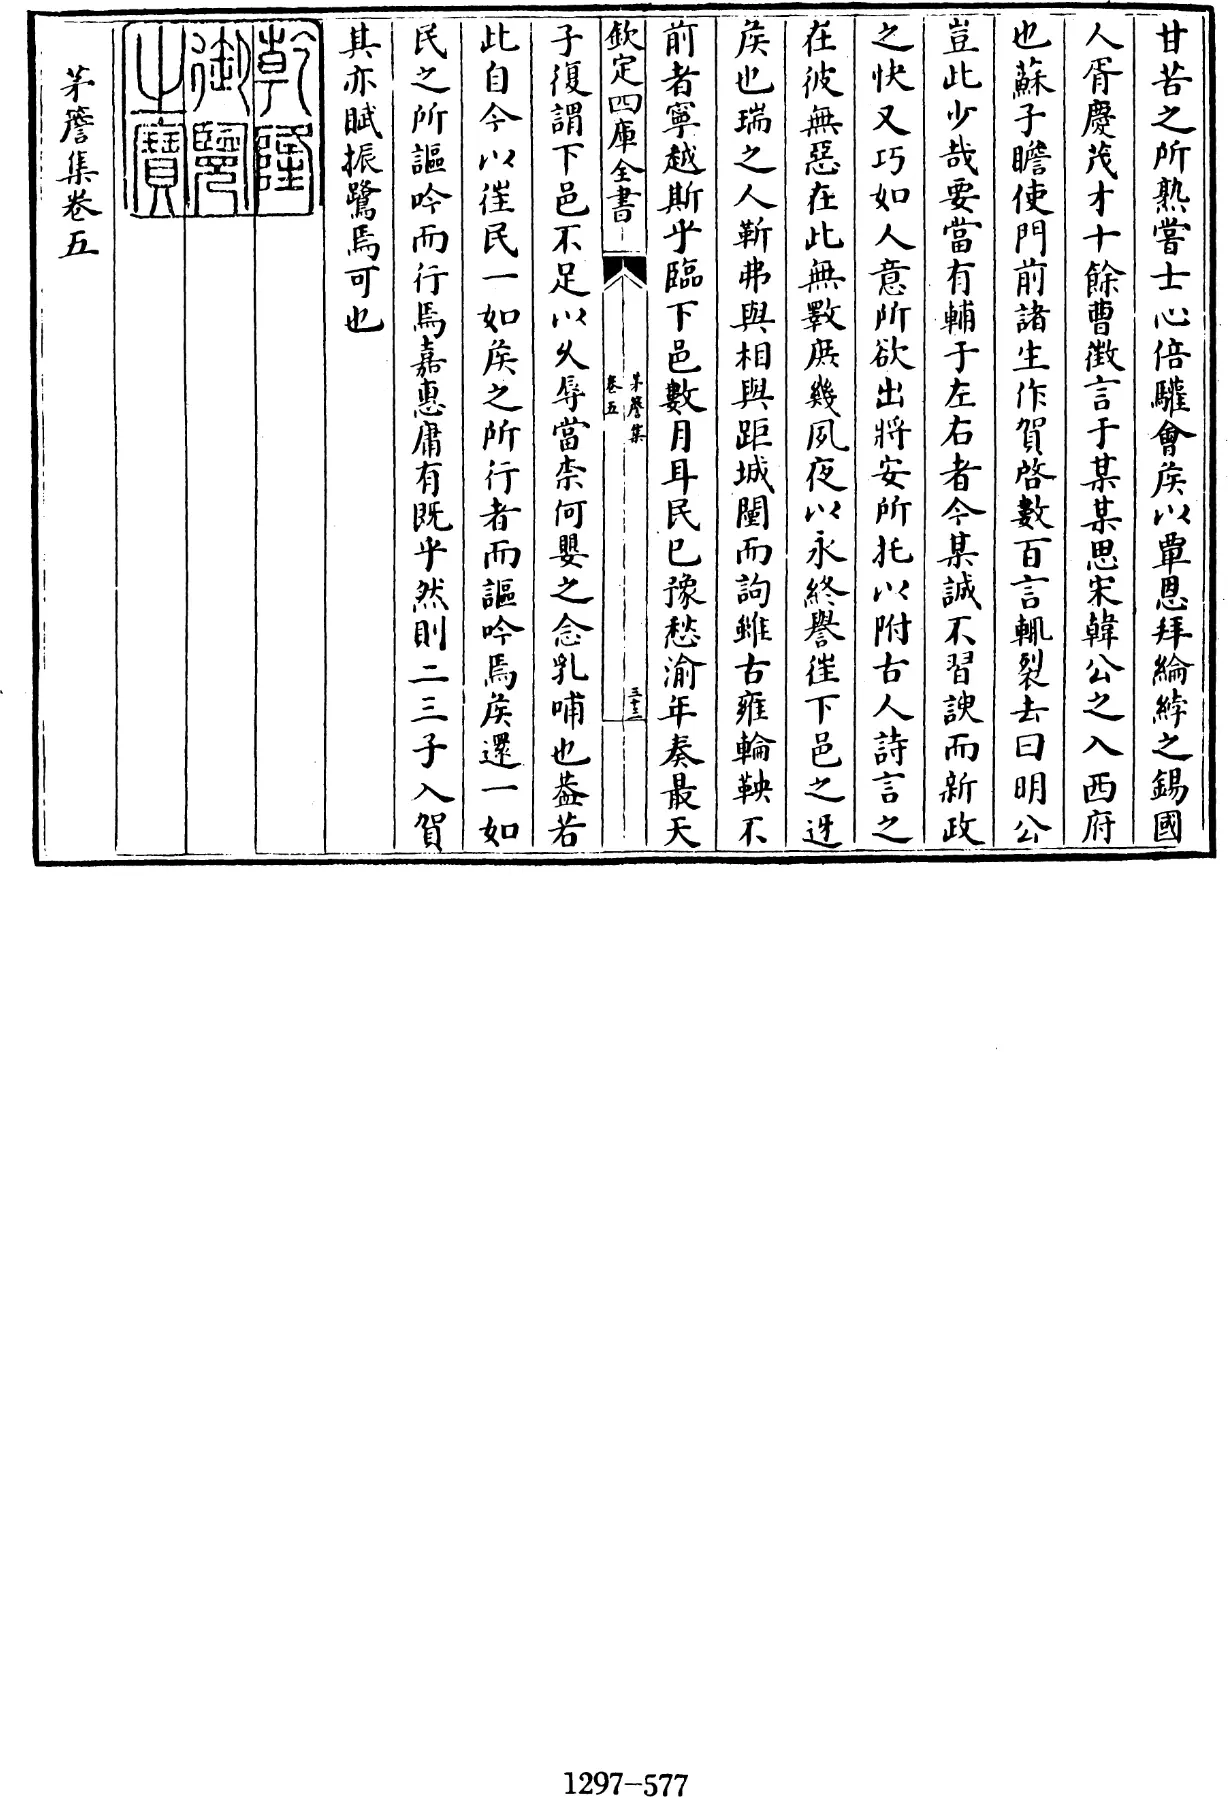 甘苦之所熟嘗士心倍驩會矦以覃恩拜綸綍之錫國
人胥慶茂才十餘曹徵言于某某思宋韓公之入西府
也蘇子瞻使門前諸生作賀啓數百言輒裂去曰明公
豈此少哉要當有輔于左右者今某誠不習諛而新政
之快又巧如人意所欲出將安所托以附古人詩言之
在彼無惡在此無斁庶幾夙夜以永終譽徃下邑之迓
矦也瑞之人靳弗與相與距城闉而詢雖古雍輪鞅不
前者寧越斯乎臨下邑數月耳民已豫愁渝年奏最天
欽定四庫全書
茅簷集
卷五
三十三
子復謂下邑不足以久辱當柰何嬰之念乳哺也葢若
此自今以徃民一如矦之所行者而謳吟焉矦還一如
民之所謳吟而行焉嘉惠庸有既乎然則二三子入賀
其亦賦振鷺焉可也
乾隆
御覽
之寶
茅簷集卷五
1297-577